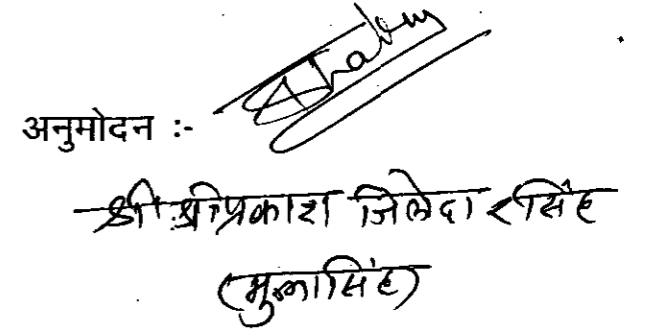 अनुमोदन :-
श्री श्रीप्रकाश जिलेदारसिंह
(मुन्नासिंह)